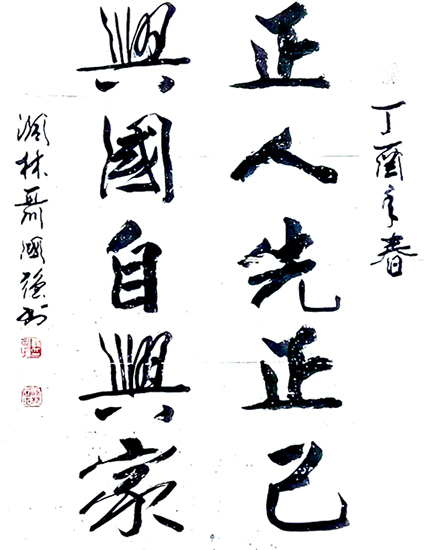 丁酉年春
正人先正己
興國自興家
林聶國強书